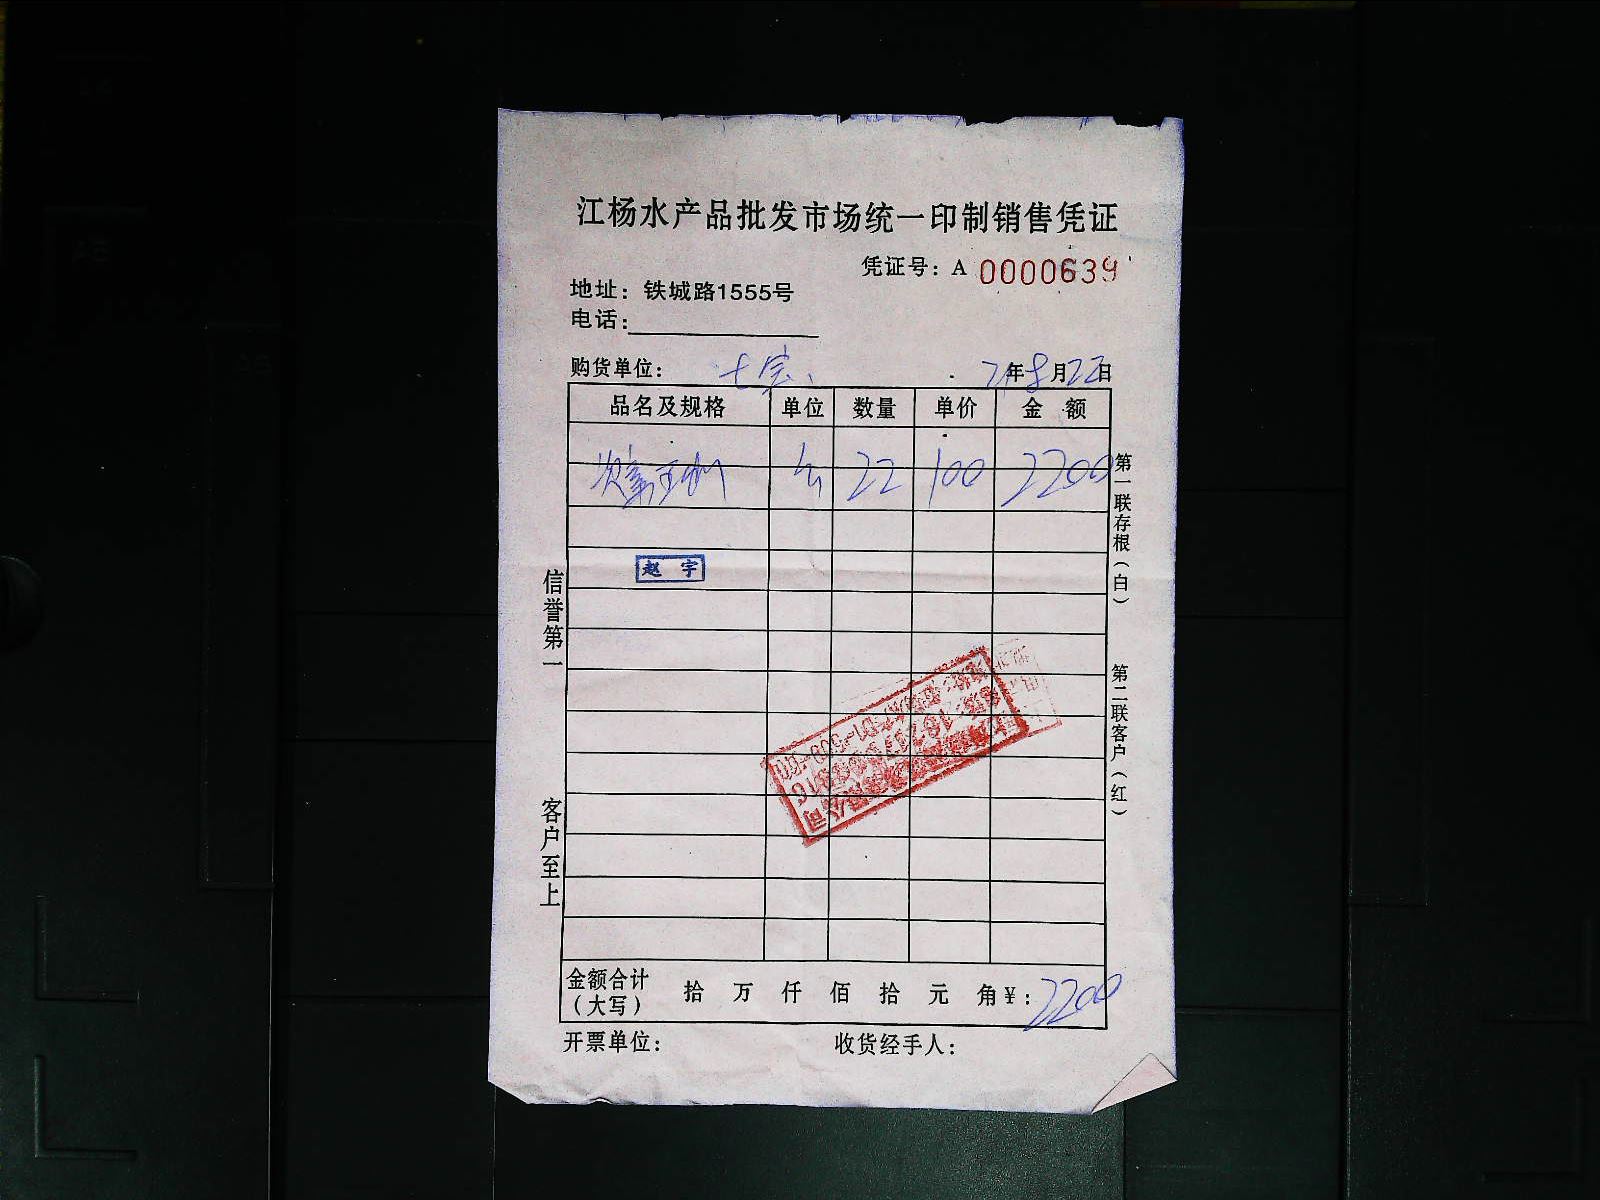 江杨水产品批发市场统一印制销售凭证
凭证号：A 0000639
地址：铁城路1555号
电话：
购货单位：七宝 21年8月22日
品名及规格 单位 数量 单价 金额
22 100 2200
赵宇
信誉第一
客户至上
第一联存根（白）
第二联客户（红）
金额合计（大写） 拾 万 仟 佰 拾 元 角 ¥：2200
开票单位： 收货经手人：